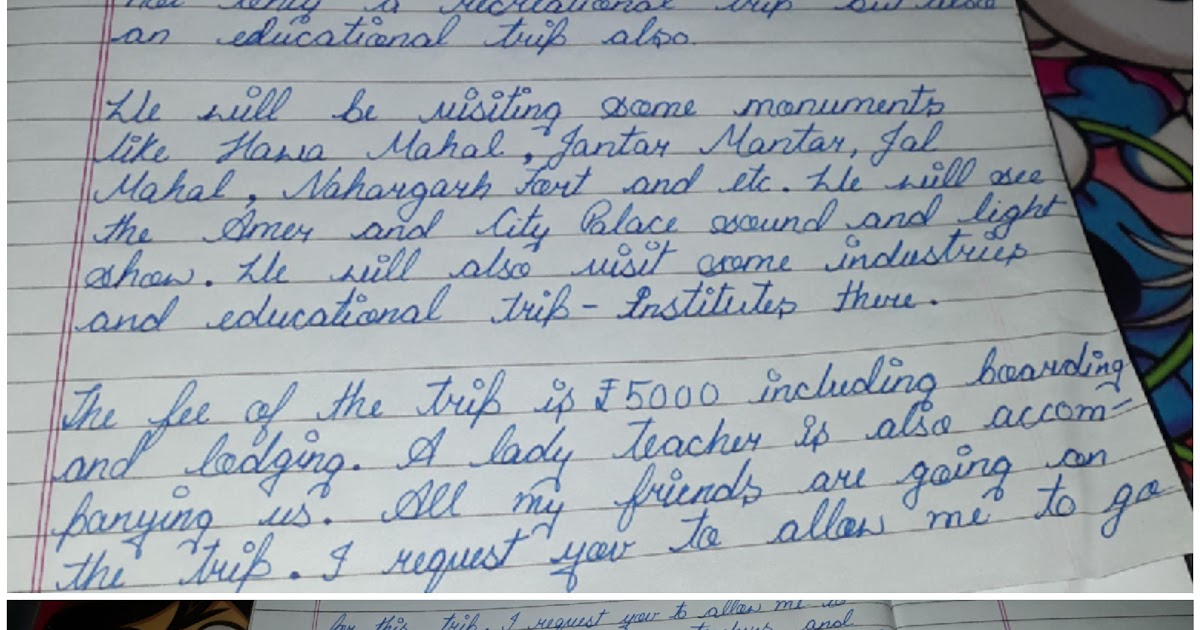 not only a recreational trip but also
an educational trip also.
We will be visiting some monuments
like Hawa Mahal, Jantar Mantar, Jal
Mahal, Nahargarh Fort and etc. We will see
the Amer and City Palace sound and light
show. We will also visit some industries
and educational trip - Institutes there.
The fee of the trip is ₹5000 including boarding
and lodging. A lady teacher is also accom-
panying us. All my friends are going on
the trip. I request you to allow me to go
for this trip. I request you to allow me to
and